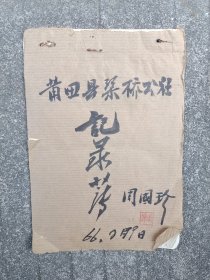 莆田县梁桥公社
记录簿
周国珍
66.9月9日